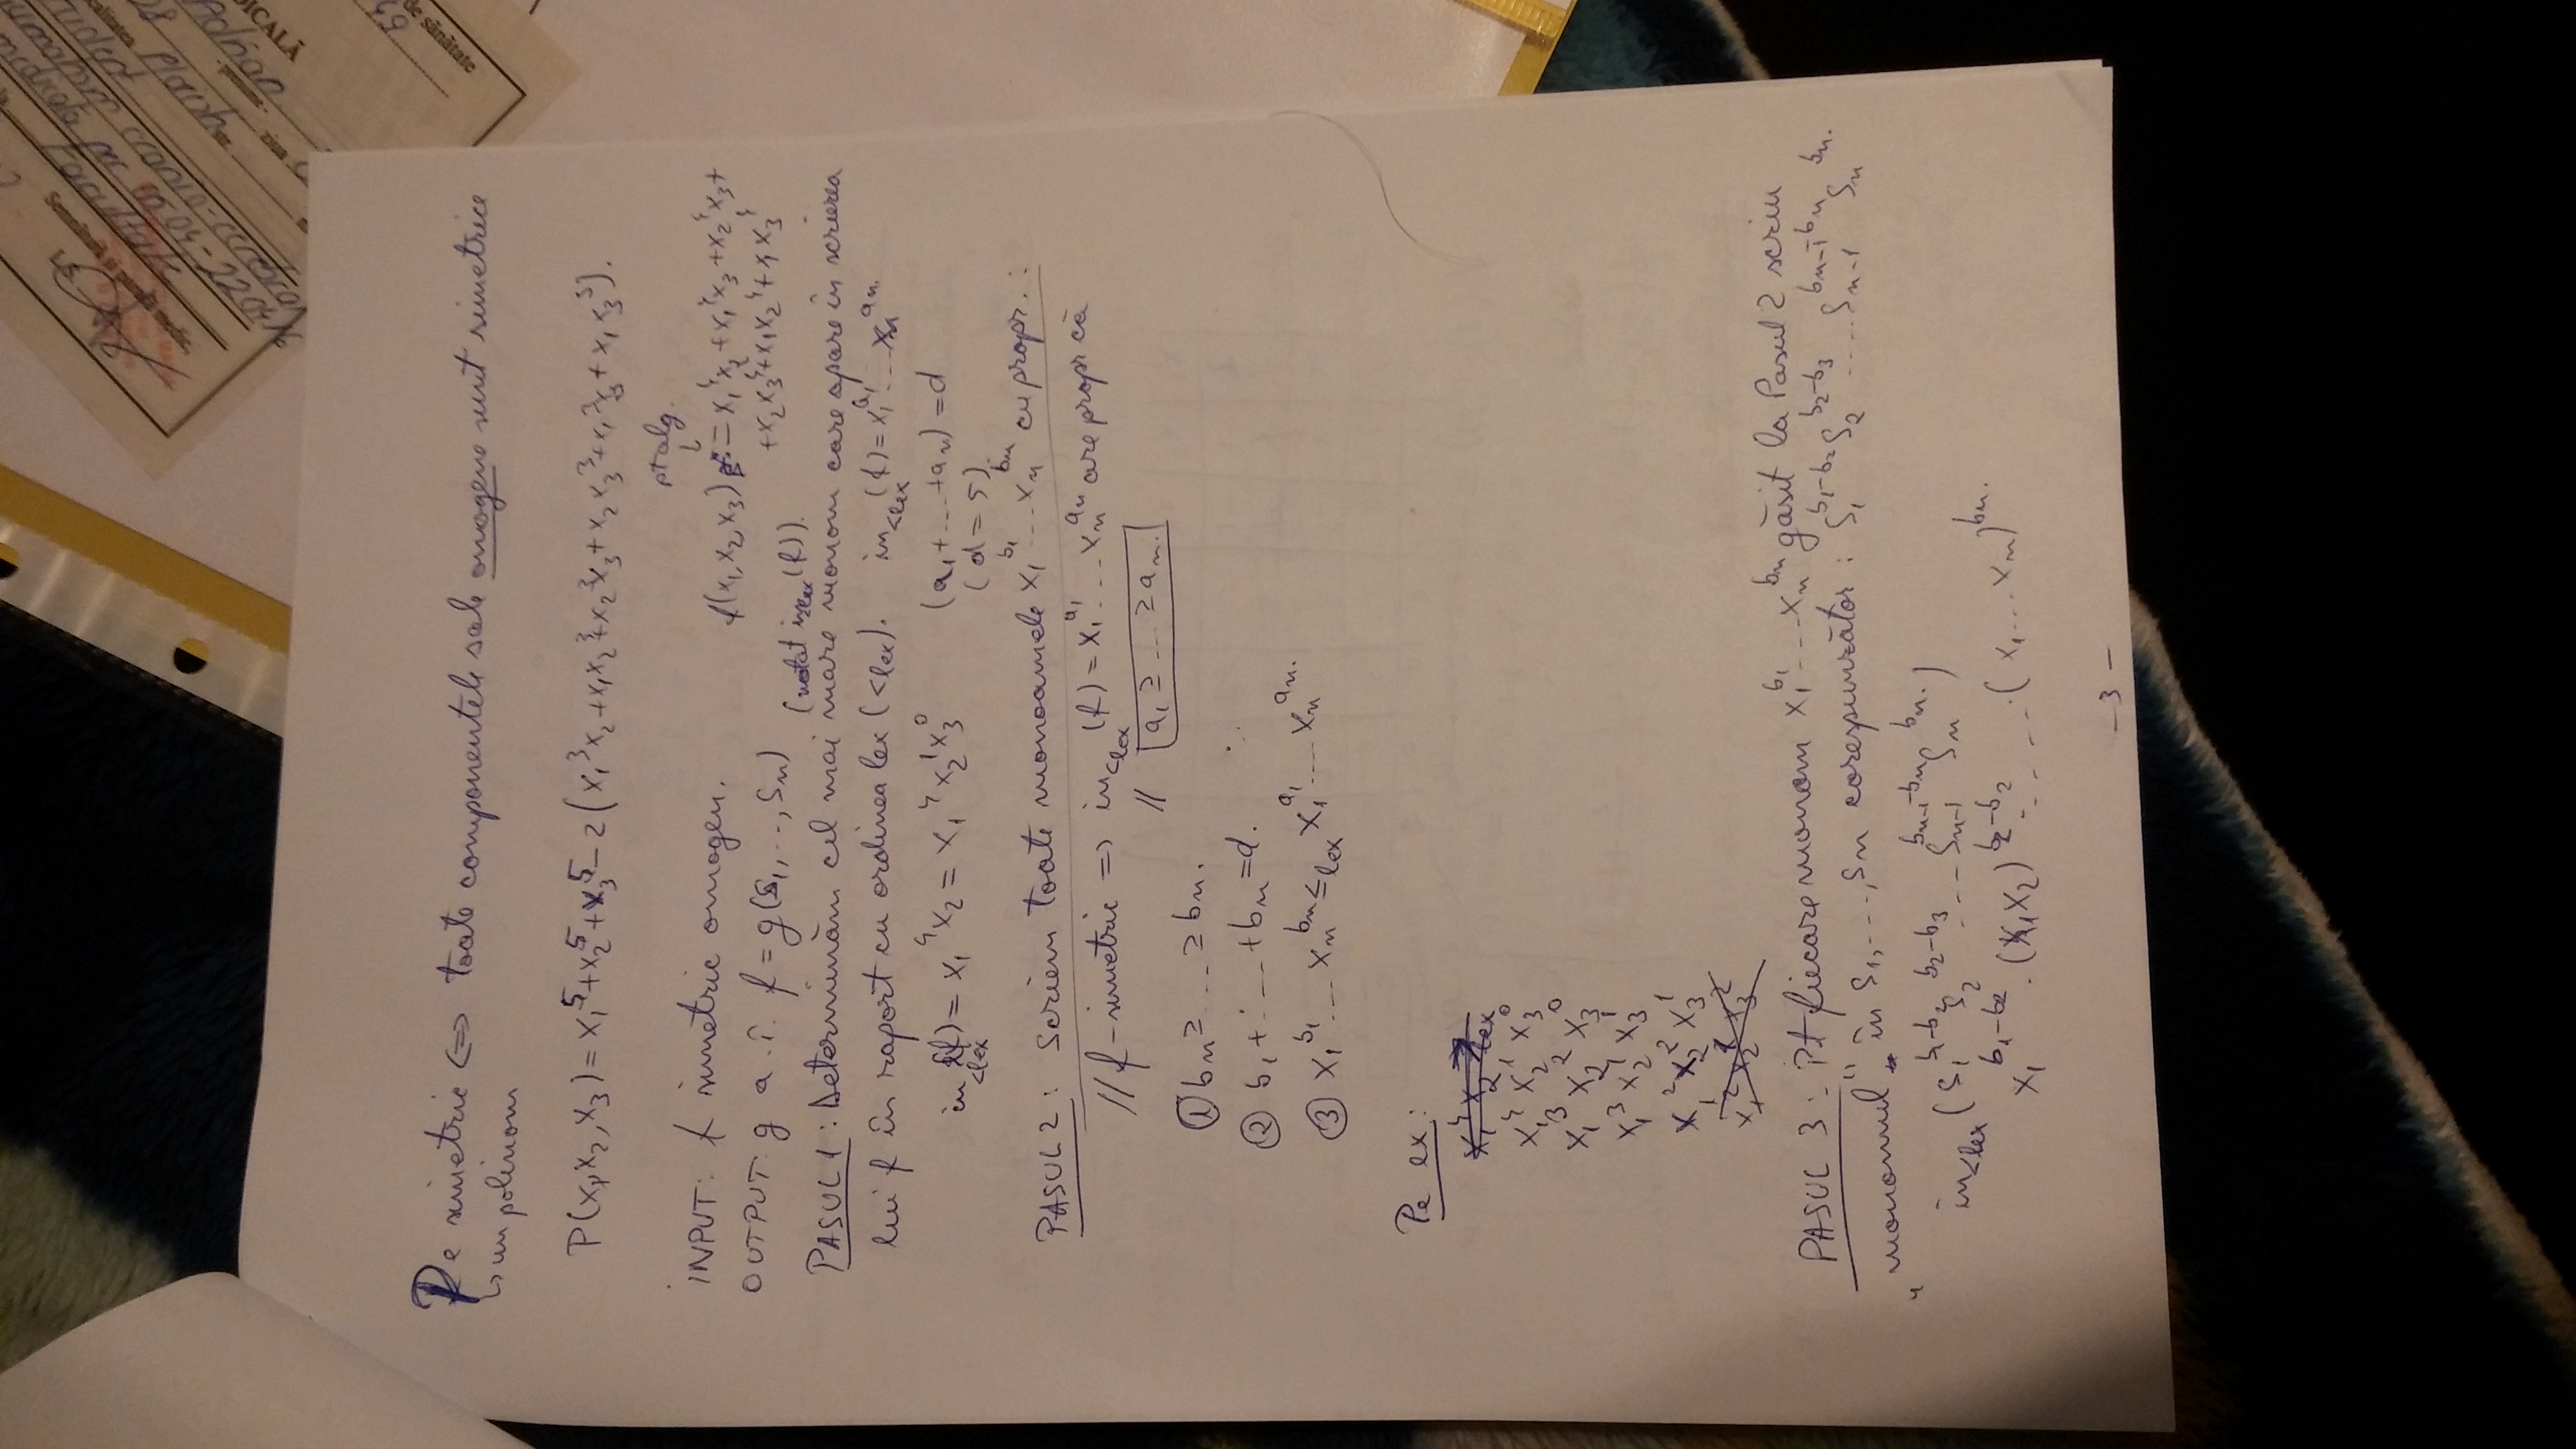 P e simetric <=> toate componentele sale omogene sunt simetrice
↳ un polinom
P(x₁,x₂,x₃) = x₁⁵+x₂⁵+x₃⁵-2(x₁³x₂+x₁x₂³+x₂³x₃+x₂x₃³+x₁³x₃+x₁x₃³).
pt alg.
↓
INPUT: f simetric omogen.
f(x₁,x₂,x₃) = x₁⁴x₂+x₁⁴x₃+x₂⁴x₃+
+x₂x₃⁴+x₁x₂⁴+x₁x₃⁴
OUTPUT: g a.î. f = g(s₁,..,sₙ)
(notat in<lex(f)).
PASUL 1: Determinăm cel mai mare monom care apare în scrierea
lui f în raport cu ordinea lex (<lex). in<lex(f) = x₁^a₁ ... xₙ^aₙ.
in<lex(f) = x₁⁴x₂ = x₁⁴x₂¹x₃⁰ (a₁+...+aₙ) = d
(d = 5).
PASUL 2: Scriem toate monoamele x₁^b₁ ... xₙ^bₙ cu propr. :
// f-simetric => in<lex(f) = x₁^a₁ ... xₙ^aₙ are propr că
// a₁ ≥ ... ≥ aₙ.
① bₙ ≥ ... ≥ bₙ.
② b₁+ ... +bₙ=d.
③ x₁^b₁ ... xₙ^bₙ ≤lex x₁^a₁ ... xₙ^aₙ.
Pe ex:
x₁⁴ x₂¹ x₃⁰
x₁³ x₂² x₃⁰
x₁³ x₂¹ x₃¹
x₁² x₂² x₃¹
PASUL 3: Pt fiecare monom x₁^b₁ ... xₙ^bₙ găsit la Pasul 2 scriu
„monomul" în s₁,...,sₙ corespunzător : s₁^b₁-b₂ s₂^b₂-b₃ .... sₙ₋₁^bₙ₋₁-bₙ sₙ^bₙ.
in<lex(s₁^b₁-b₂ s₂^b₂-b₃ .... sₙ₋₁^bₙ₋₁-bₙ sₙ^bₙ.)
x₁^b₁-b₂ . (x₁x₂)^b₂-b₂ ..... (x₁...xₙ)^bₙ.
-3-